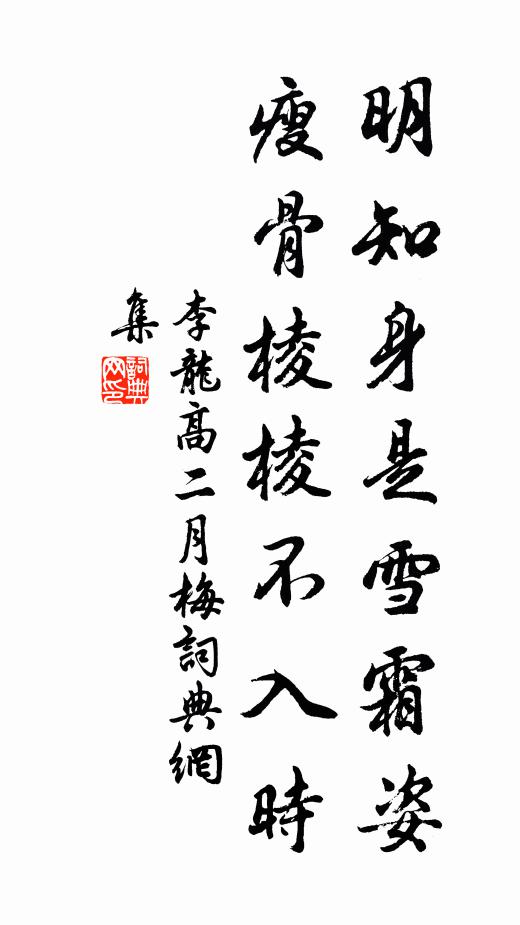 明知身是雪霜姿
瘦骨棱棱不入時
李龍高二月梅詞典網
集
詞典
网印